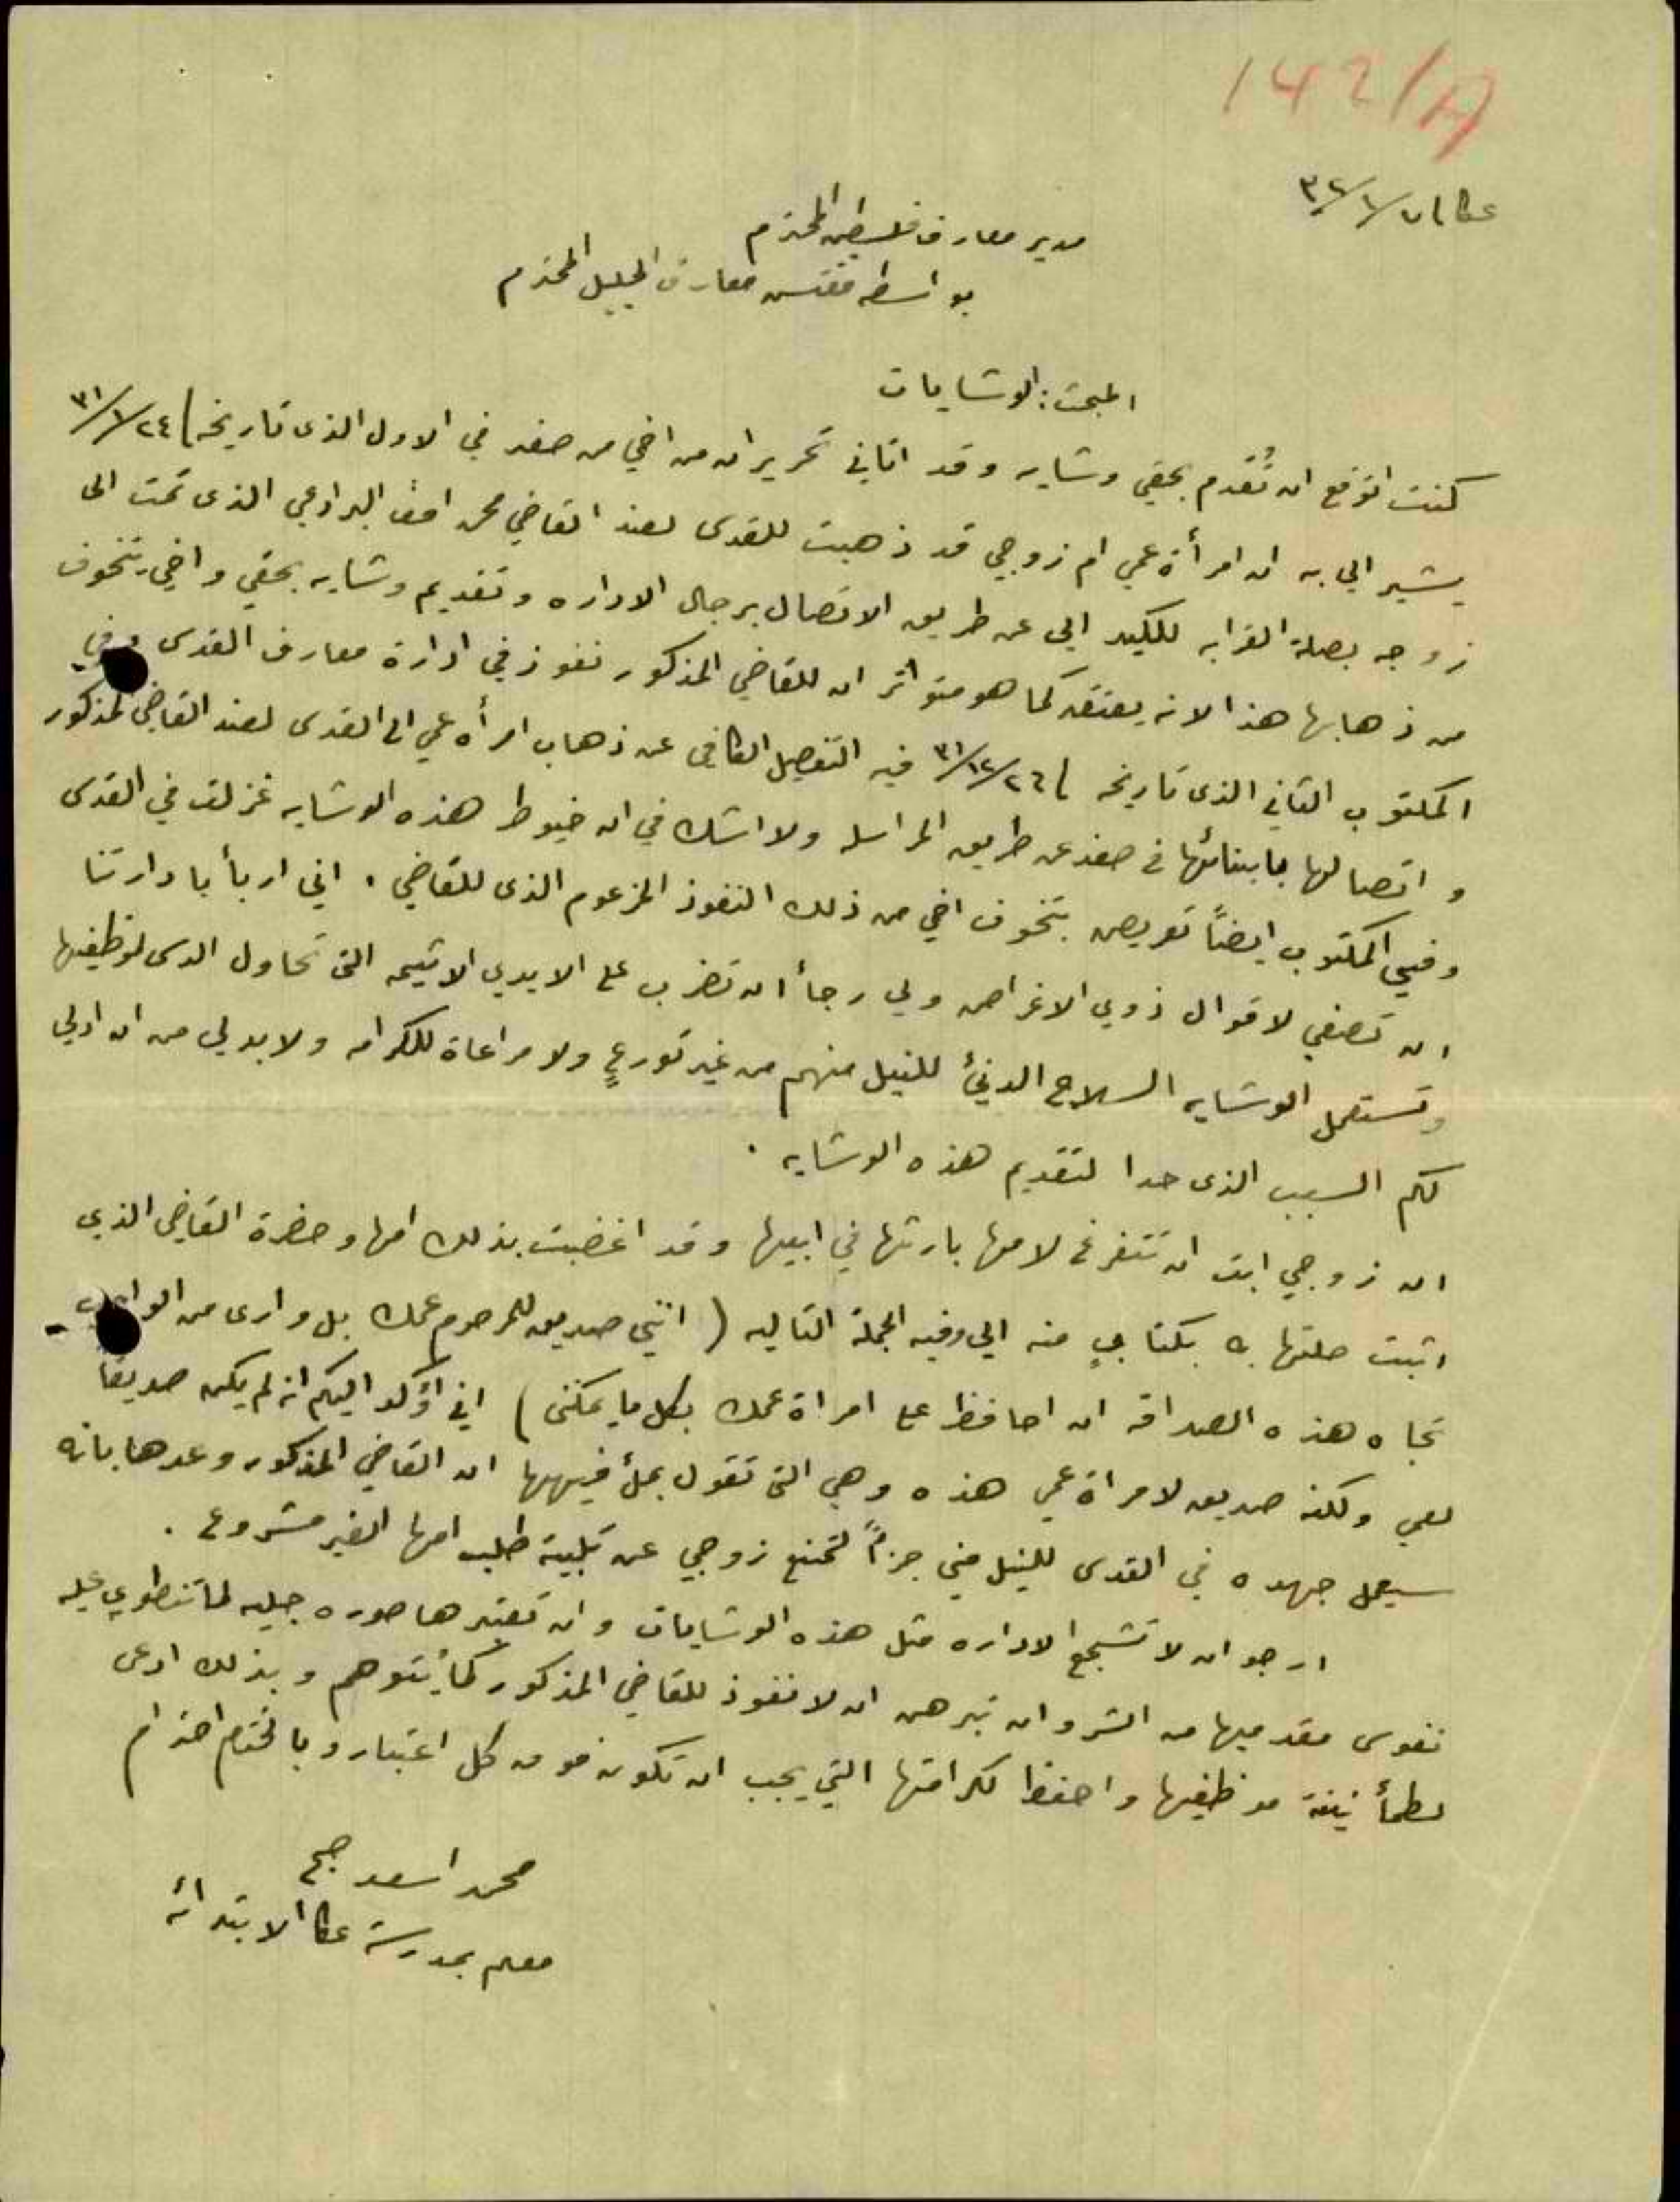 142/A
عكا في ٧/١/٣٢
مدير معارف فلسطين المحترم
بواسطة مفتش معارف الجليل المحترم
المبحث: الوشايات
كنت اتوقع ان تُقدم بحقي وشايه وقد اتاني تحريران من اخي من صفد في الاول الذى تاريخه ٢٤/١/٣١
يشير الي به ان امرأة عمي ام زوجي قد ذهبت للقدس لعند القاضي محمد افندي البرادعي الذى تمت الى
زوجه بصلة القرابه للكيد الي عن طريق الاتصال برجال الاداره وتقديم وشايه بحقي واخي يتخوف
من ذهابها هذا لانه يعتقد كما هو متواتر ان للقاضي المذكور نفوذ في ادارة معارف القدس وفي
المكتوب الثاني الذى تاريخه ٢٦/١٢/٣١ فيه التفصيل الكافي عن ذهاب امرأه عمي الى القدس لعند القاضي المذكور
واتصالها بابنائها في صفد عن طريق المراسله ولا اشك في ان خيوط هذه الوشايه غزلت في القدس
وفي المكتوب ايضاً تعريض بتخوف اخي من ذلك النفوذ المزعوم الذى للقاضي. اني اربأ بادارتنا
ان تصغي لاقوال ذوي الاغراض ولي رجأ ان تضرب على الايدي الاثيمه التى تحاول الدس لموظفيها
وتستعمل الوشايه السلاح الدنيئ للنيل منهم من غير تورعٍ ولا مراعاة للكرامه ولا بد لي من ان ادلي
لكم السبب الذى حدا لتقديم هذه الوشايه.
ان زوجي ابت ان تتفرغ لامها بارثها في ابيها وقد اغضبت بذلك امها وحضرة القاضي الذي
اثبت صلتها به بكتابٍ منه الي وفيه الجملة التاليه (انني صديق للمرحوم عمك بل وارى من الواجب
تجاه هذه الصداقه ان احافظ على امراة عمك بكل ما يمكننى) اني اؤكد اليكم انه لم يكن صديقا
لعمي ولكنه صديق لامراة عمي هذه وهي التى تقول بملأ فيهها ان القاضي المذكور وعدها بانه
سيعمل جهده في القدس للنيل مني جزأً لتمنع زوجي عن تلبية طلب امها الغير مشروع.
ارجو ان لا تشجع الاداره مثل هذه الوشايات وان تعتبرها صوره جليه لما تنطوي عليه
نفوس مقدميها من الشر وان تبرهن ان لا نفوذ للقاضي المذكور كما يُتوهم وبذلك ادعى
لطمأنينة موظفيها واحفظ لكرامتها التي يجب ان تكون فوق كل اعتبار وبالختام احترام
محمد اسعد
معلم بمدرسة عكا الابتدائيه